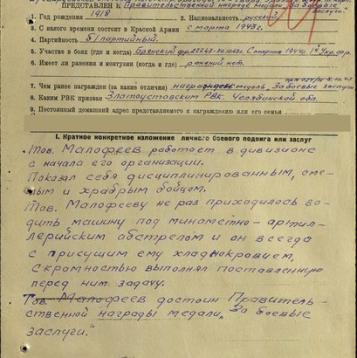 ПРЕДСТАВЛЕН К Правительственной награде медали "За боевые
заслуги"
1. Год рождения 1918 2. Национальность русский
3. С какого времени состоит в Красной Армии с марта 1943г.
4. Партийность б/партийный
5. Участие в боях (где и когда)
6. Имеет ли ранения и контузии (когда и где) ранений нет.
7. Чем ранее награжден (за какие отличия) За боевые заслуги
8. Каким РВК призван Златоустовским РВК. Челябинской обл.
9. Постоянный домашний адрес представляемого к награждению или его семьи
I. Краткое конкретное изложение личного боевого подвига или заслуг
Тов. Малофеев работает в дивизионе
с начала его организации.
Показал себя дисциплинированным, сме-
лым и храбрым бойцом.
Тов. Малофееву не раз приходилось во-
дить машину под минометно-артил-
лерийским абстрелом и он всегда
с присущим ему хладнокровием,
скромностью выполнял поставленную
перед ним задачу.
Тов. Малофеев достоин Правитель-
ственной награды медали "За боевые
заслуги."